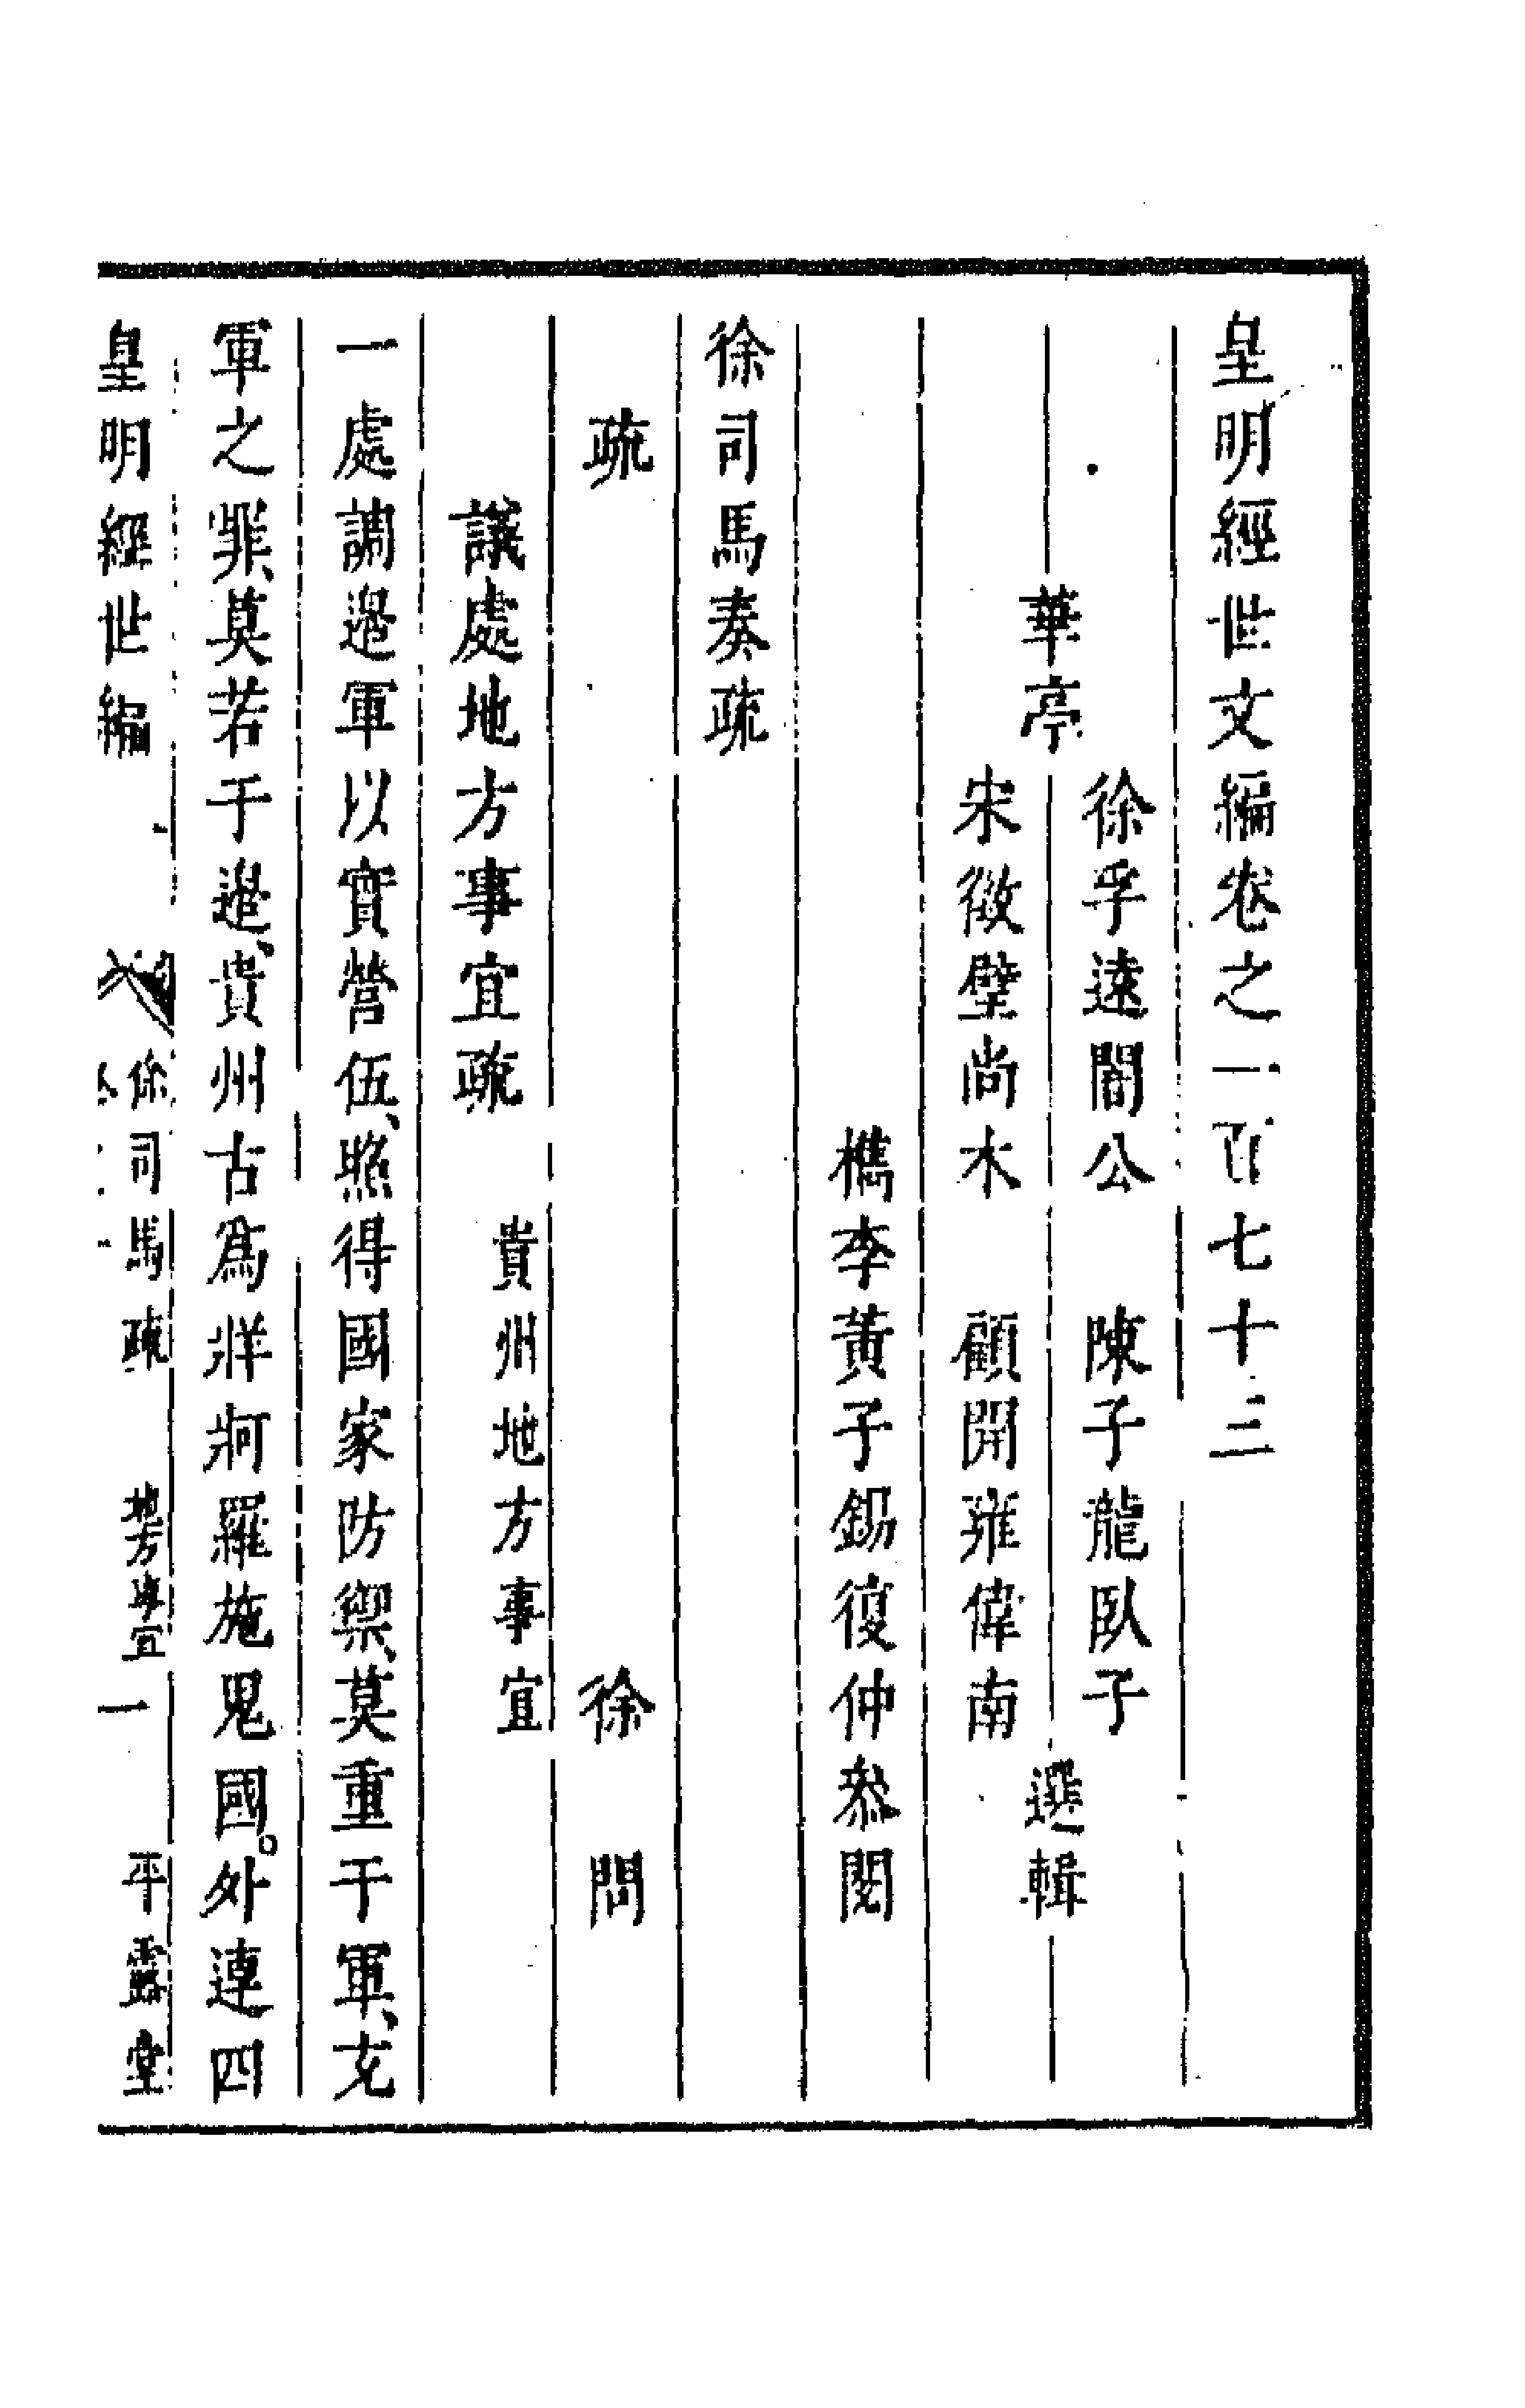 皇明經世文編卷之一百七十三
華亭
徐孚遠闇公　陳子龍臥子
宋徵璧尚木　顧開雍偉南
選輯
檇李黃子錫復仲參閱
徐司馬奏疏
疏　徐問
議處地方事宜疏　貴州地方事宜
一處調邊軍以實營伍、照得國家防禦、莫重于軍、充
軍之罪、莫若于邊、貴州古為牂牁羅施鬼國。外連四
皇明經世編　徐司馬疏　地方事宜　一　平露堂